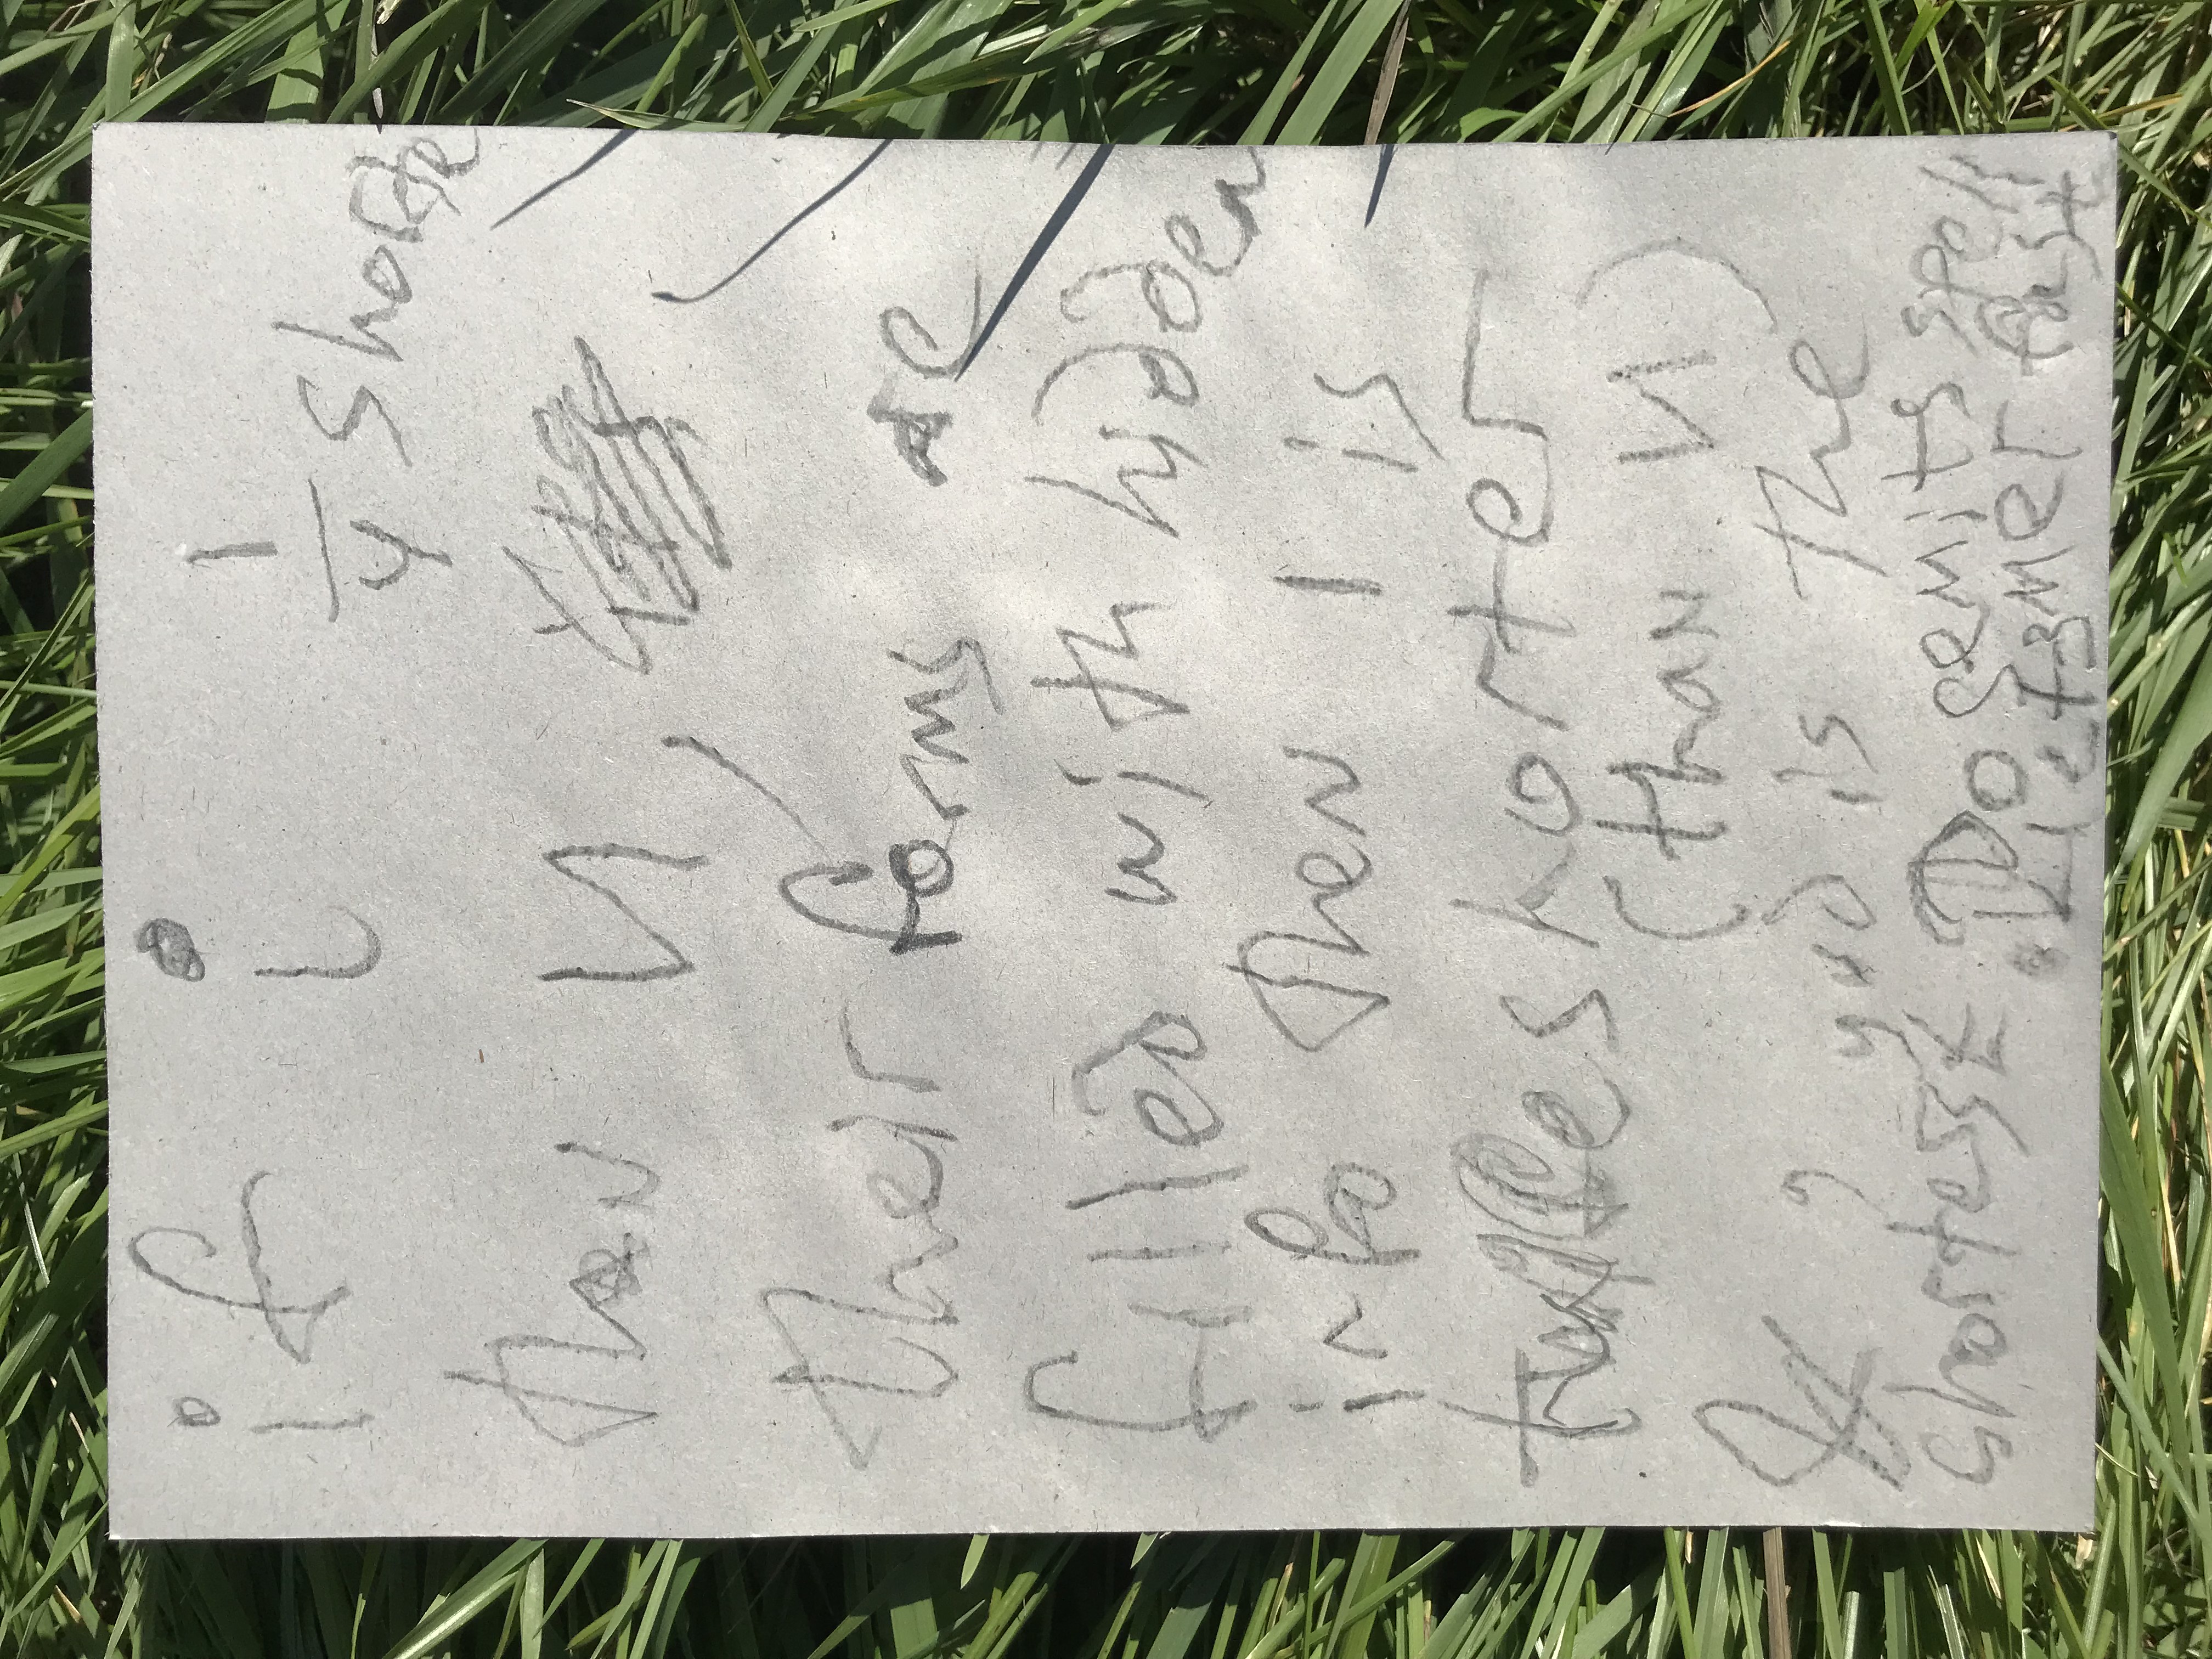 if i 1/4 shorte
than И,
their forms are
filled with hidden
info then I is
twice shorter
(than И)
& 9 yud is the
shortest. Do semits spell
Kletzmer fast